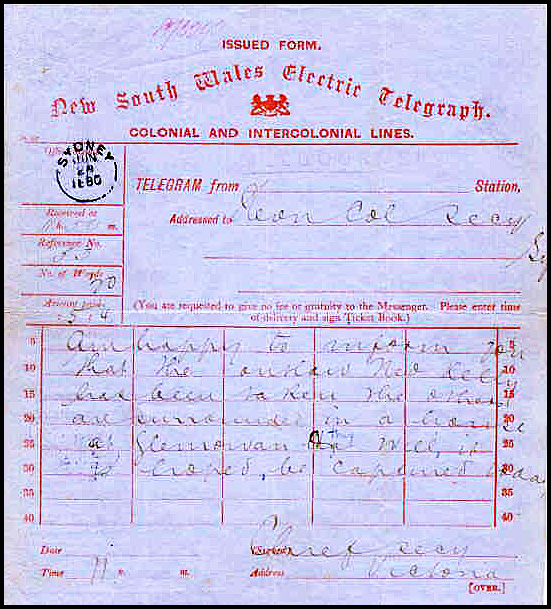 ISSUED FORM.
New South Wales Electric Telegraph.
COLONIAL AND INTERCOLONIAL LINES.
SYDNEY
JUN
1880
TELEGRAM from Station,
Addressed to Hon Col Secy
Received at
h. m.
Reference No.
No. of Words
70
Amount paid
: 5 : 4
(You are requested to give no fee or gratuity to the Messenger. Please enter time
of delivery and sign Ticket Book.)
5 Am happy to inform you 5
10 that the outlaw Ned Kelly 10
15 has been taken the others 15
20 are surrounded in a house 20
25 at Glenrowan and will, it 25
30 is hoped, be captured today 30
35 35
40 40
Date Signed Chief Secy
Time 11 m. Address Victoria
[OVER.]